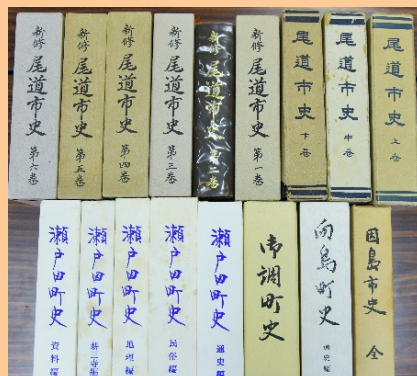 新修 尾道市史 第六巻
新修 尾道市史 第五巻
新修 尾道市史 第四巻
新修 尾道市史 第三巻
新修 尾道市史 第二巻
新修 尾道市史 第一巻
尾道市史 下巻
尾道市史 中巻
尾道市史 上巻
瀬戸田町史 資料編
瀬戸田町史
瀬戸田町史 地理編
瀬戸田町史 民俗編
瀬戸田町史 通史編
御調町史
向島町史 通史編
因島市史 全